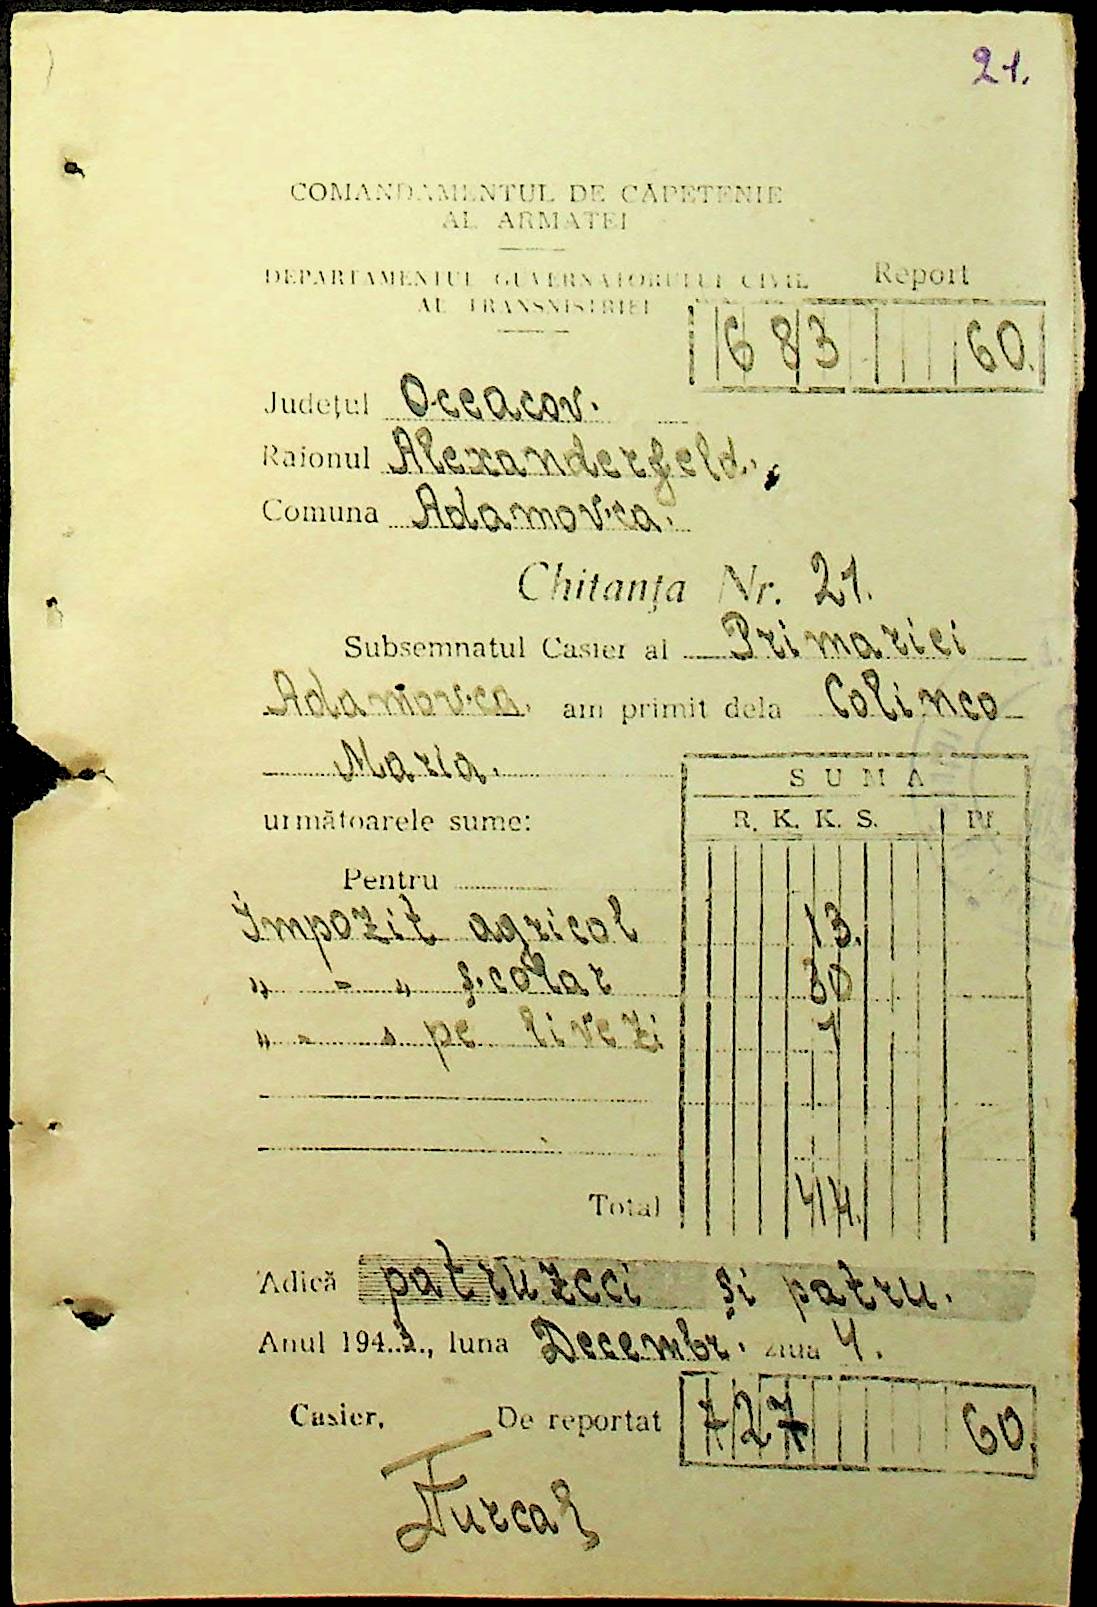 21.
COMANDAMENTUL DE CĂPETENIE
AL ARMATEI
DEPARTAMENTUL GUVERNATORULUI CIVIL
AL TRANSNISTRIEI
Report
683 60.
Județul Oceacov.
Raionul Alexanderfeld.
Comuna Adamovca.
Chitanța Nr. 21.
Subsemnatul Casier al Primariei
Adamovca. am primit dela Colinco
Maria.
următoarele sume:
SUMA
R. K. K. S. Pf.
Pentru
Impozit agricol 13.
" - " școlar 30
" - " pe livezi 1
Total 44.
Adică patruzeci și patru.
Anul 1943., luna Decembr. ziua 4.
Casier, De reportat 727 60.
Țurcal